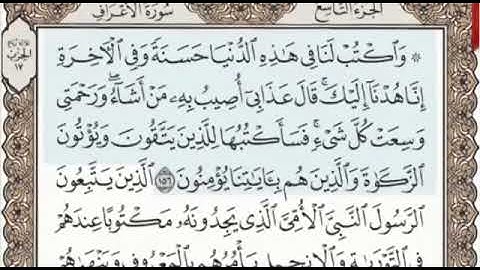 الجزء التاسع
سورة الأعراف
الحزب
١٧
۞ وَٱكْتُبْ لَنَا فِى هَـٰذِهِ ٱلدُّنْيَا حَسَنَةً وَفِى ٱلْـَٔاخِرَةِ
إِنَّا هُدْنَآ إِلَيْكَ ۚ قَالَ عَذَابِىٓ أُصِيبُ بِهِۦ مَنْ أَشَآءُ ۖ وَرَحْمَتِى
وَسِعَتْ كُلَّ شَىْءٍ ۚ فَسَأَكْتُبُهَا لِلَّذِينَ يَتَّقُونَ وَيُؤْتُونَ
ٱلزَّكَوٰةَ وَٱلَّذِينَ هُم بِـَٔايَـٰتِنَا يُؤْمِنُونَ ١٥٦ ٱلَّذِينَ يَتَّبِعُونَ
ٱلرَّسُولَ ٱلنَّبِىَّ ٱلْأُمِّىَّ ٱلَّذِى يَجِدُونَهُۥ مَكْتُوبًا عِندَهُمْ
فِى ٱلتَّوْرَىٰةِ وَٱلْإِنجِيلِ يَأْمُرُهُم بِٱلْمَعْرُوفِ وَيَنْهَىٰهُمْ